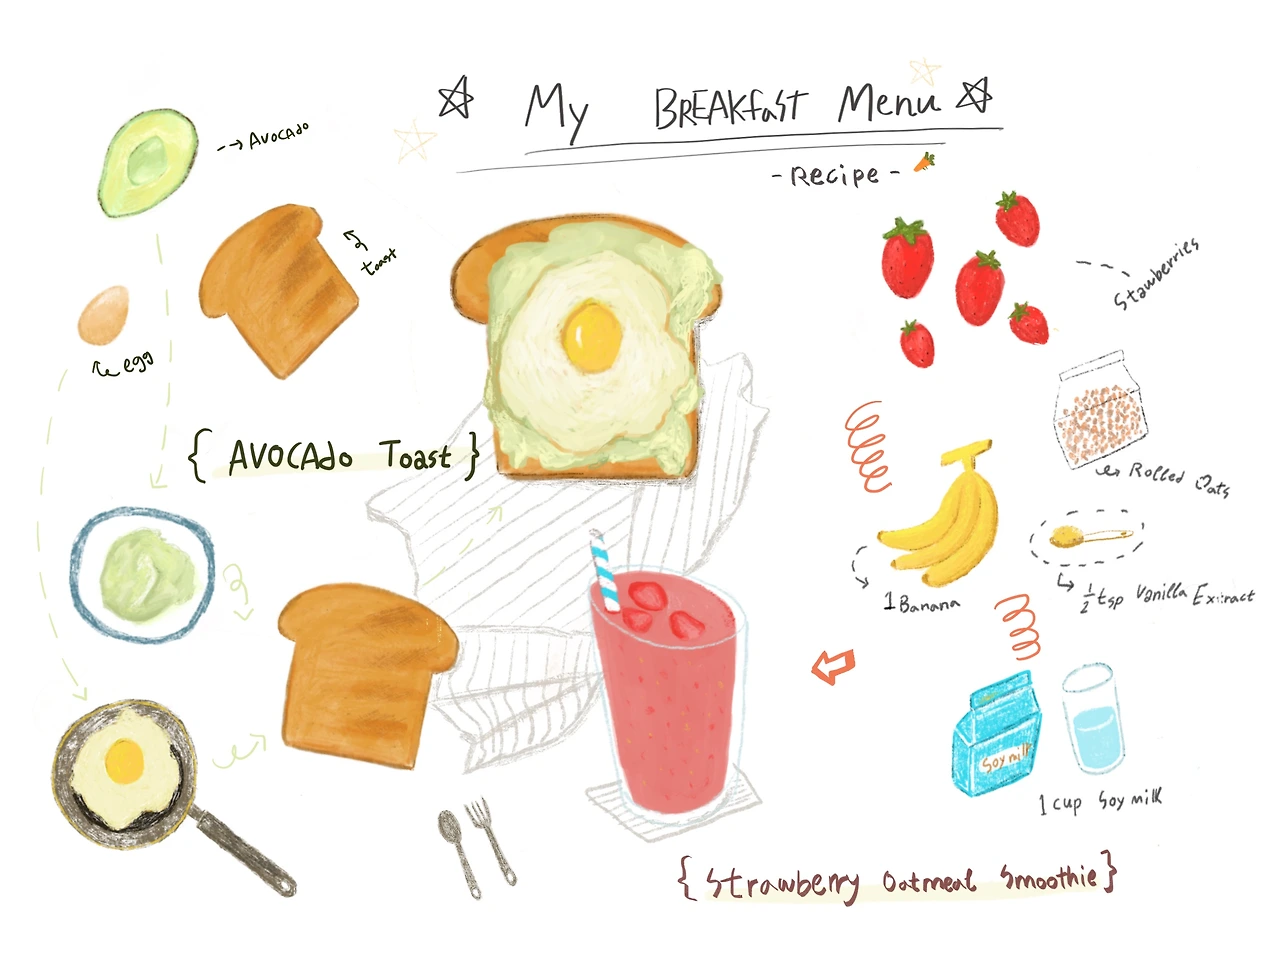 My BREAKfast Menu
- Recipe -
Avocado
toast
egg
{ AVOCAdo Toast }
Stawberries
Rolled Oats
1 Banana
1/2 tsp Vanilla Extract
Soy milk
1 cup Soy milk
{ Strawberry Oatmeal Smoothie }